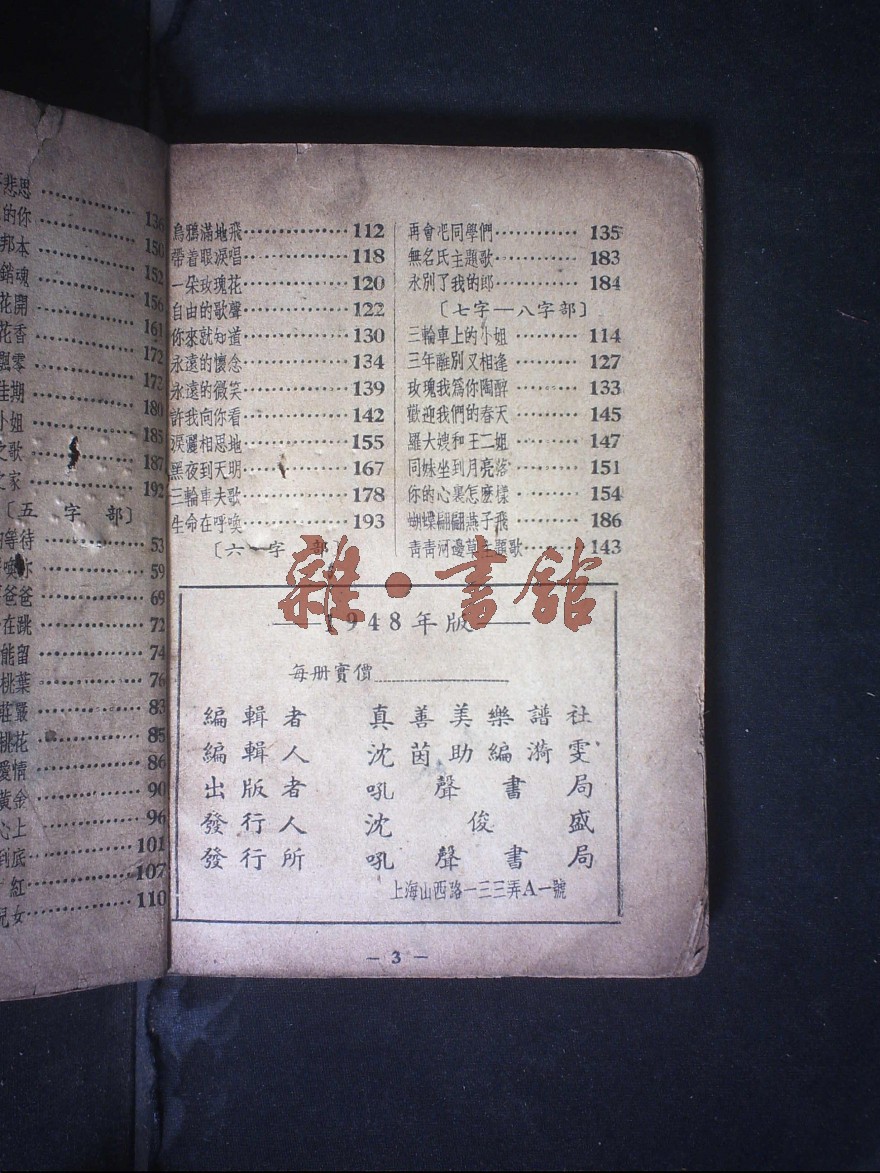 悲思 136
的你 150
邦本 152
銷魂 156
花開 161
花香 172
飄零 172
佳期 180
小姐 185
之歌 187
之家 192
〔五 字 部〕
等待 53
喚你 59
爸爸 69
在跳 72
能留 74
桃葉 76
莊嚴 83
桃花 85
愛情 86
黃金 90
心上 96
到底 101
紅 107
兒女 110
烏鴉滿地飛 112
帶着眼淚唱 118
一朵玫瑰花 120
自由的歌聲 122
你來就知道 130
永遠的懷念 134
永遠的微笑 139
許我向你看 142
淚灑相思地 155
黑夜到天明 167
三輪車夫歌 178
生命在呼喚 193
〔六 字 部
再會吧同學們 135
無名氏主題歌 183
永別了我的郎 184
〔七字—八字部〕
三輪車上的小姐 114
三年離別又相逢 127
玫瑰我爲你陶醉 133
歡迎我們的春天 145
羅大嫂和王二姐 147
同妹坐到月亮落 151
你的心裏怎麼樣 154
蝴蝶翩翩燕子飛 186
靑靑河邊草主題歌 143
雜·書館
1948年版
每册實價
編輯者 真善美樂譜社
編輯人 沈茵助編漪雯
出版者 吼聲書局
發行人 沈俊盛
發行所 吼聲書局
上海山西路一三三弄A一號
— 3 —